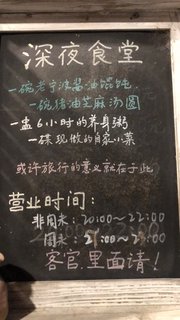 深夜食堂
一碗老宁波酱油馄饨
一碗猪油芝麻汤圆
一盅6小时的养身粥
一碟现做的自家小菜
或许旅行的意义就在于此
营业时间:
非周末:20:00~22:00
周末:21:00~23:00
客官,里面请!